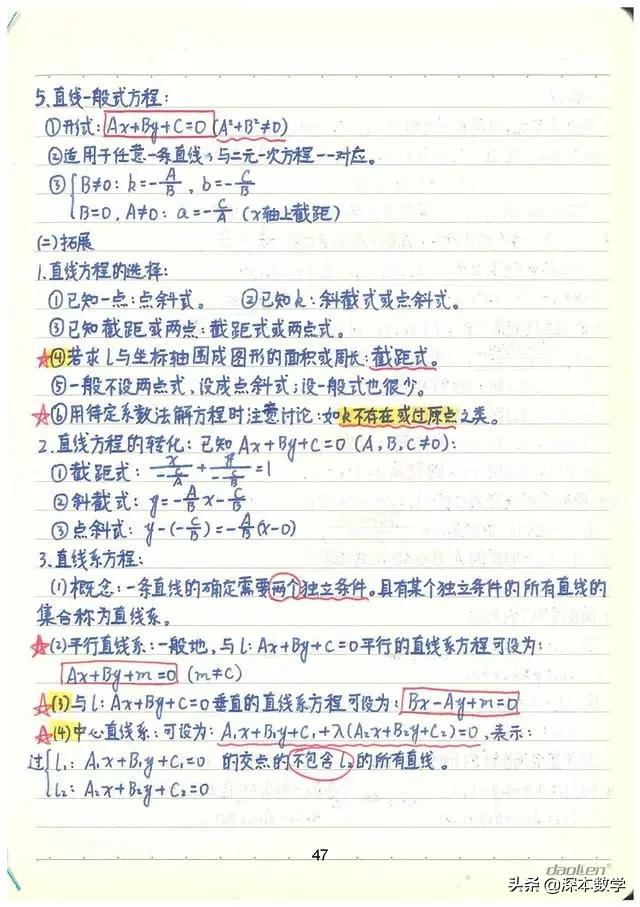 5.直线一般式方程：
①形式：Ax+By+C=0 (A²+B²≠0)
②适用于任意一条直线，与二元一次方程一一对应。
③{B≠0: k=-A/B, b=-C/B
B=0, A≠0: a=-C/A (x轴上截距)
(二)拓展
1.直线方程的选择：
①已知一点：点斜式。 ②已知k：斜截式或点斜式。
③已知截距或两点：截距式或两点式。
☆④若求l与坐标轴围成图形的面积或周长：截距式。
⑤一般不设两点式，设成点斜式；设一般式也很少。
☆⑥用待定系数法解方程时注意讨论：如k不存在或过原点之类。
2.直线方程的转化：已知Ax+By+C=0 (A,B,C≠0)：
①截距式：x/(-C/A)+y/(-C/B)=1
②斜截式：y=-A/B x-C/B
③点斜式：y-(-C/B)=-A/B(x-0)
3.直线系方程：
(1)概念：一条直线的确定需要两个独立条件。具有某个独立条件的所有直线的
集合称为直线系。
☆(2)平行直线系：一般地，与l：Ax+By+C=0平行的直线系方程可设为：
Ax+By+m=0 (m≠C)
☆(3)与l：Ax+By+C=0垂直的直线系方程可设为：Bx-Ay+m=0
☆(4)中心直线系：可设为：A₁x+B₁y+C₁+λ(A₂x+B₂y+C₂)=0，表示：
过{l₁：A₁x+B₁y+C₁=0 的交点的不包含l₂的所有直线。
l₂：A₂x+B₂y+C₂=0
47
daolen
头条@深本数学